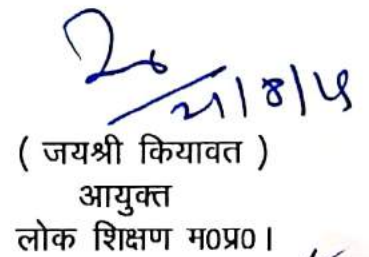 ( जयश्री कियावत )
आयुक्त
लोक शिक्षण म0प्र0।